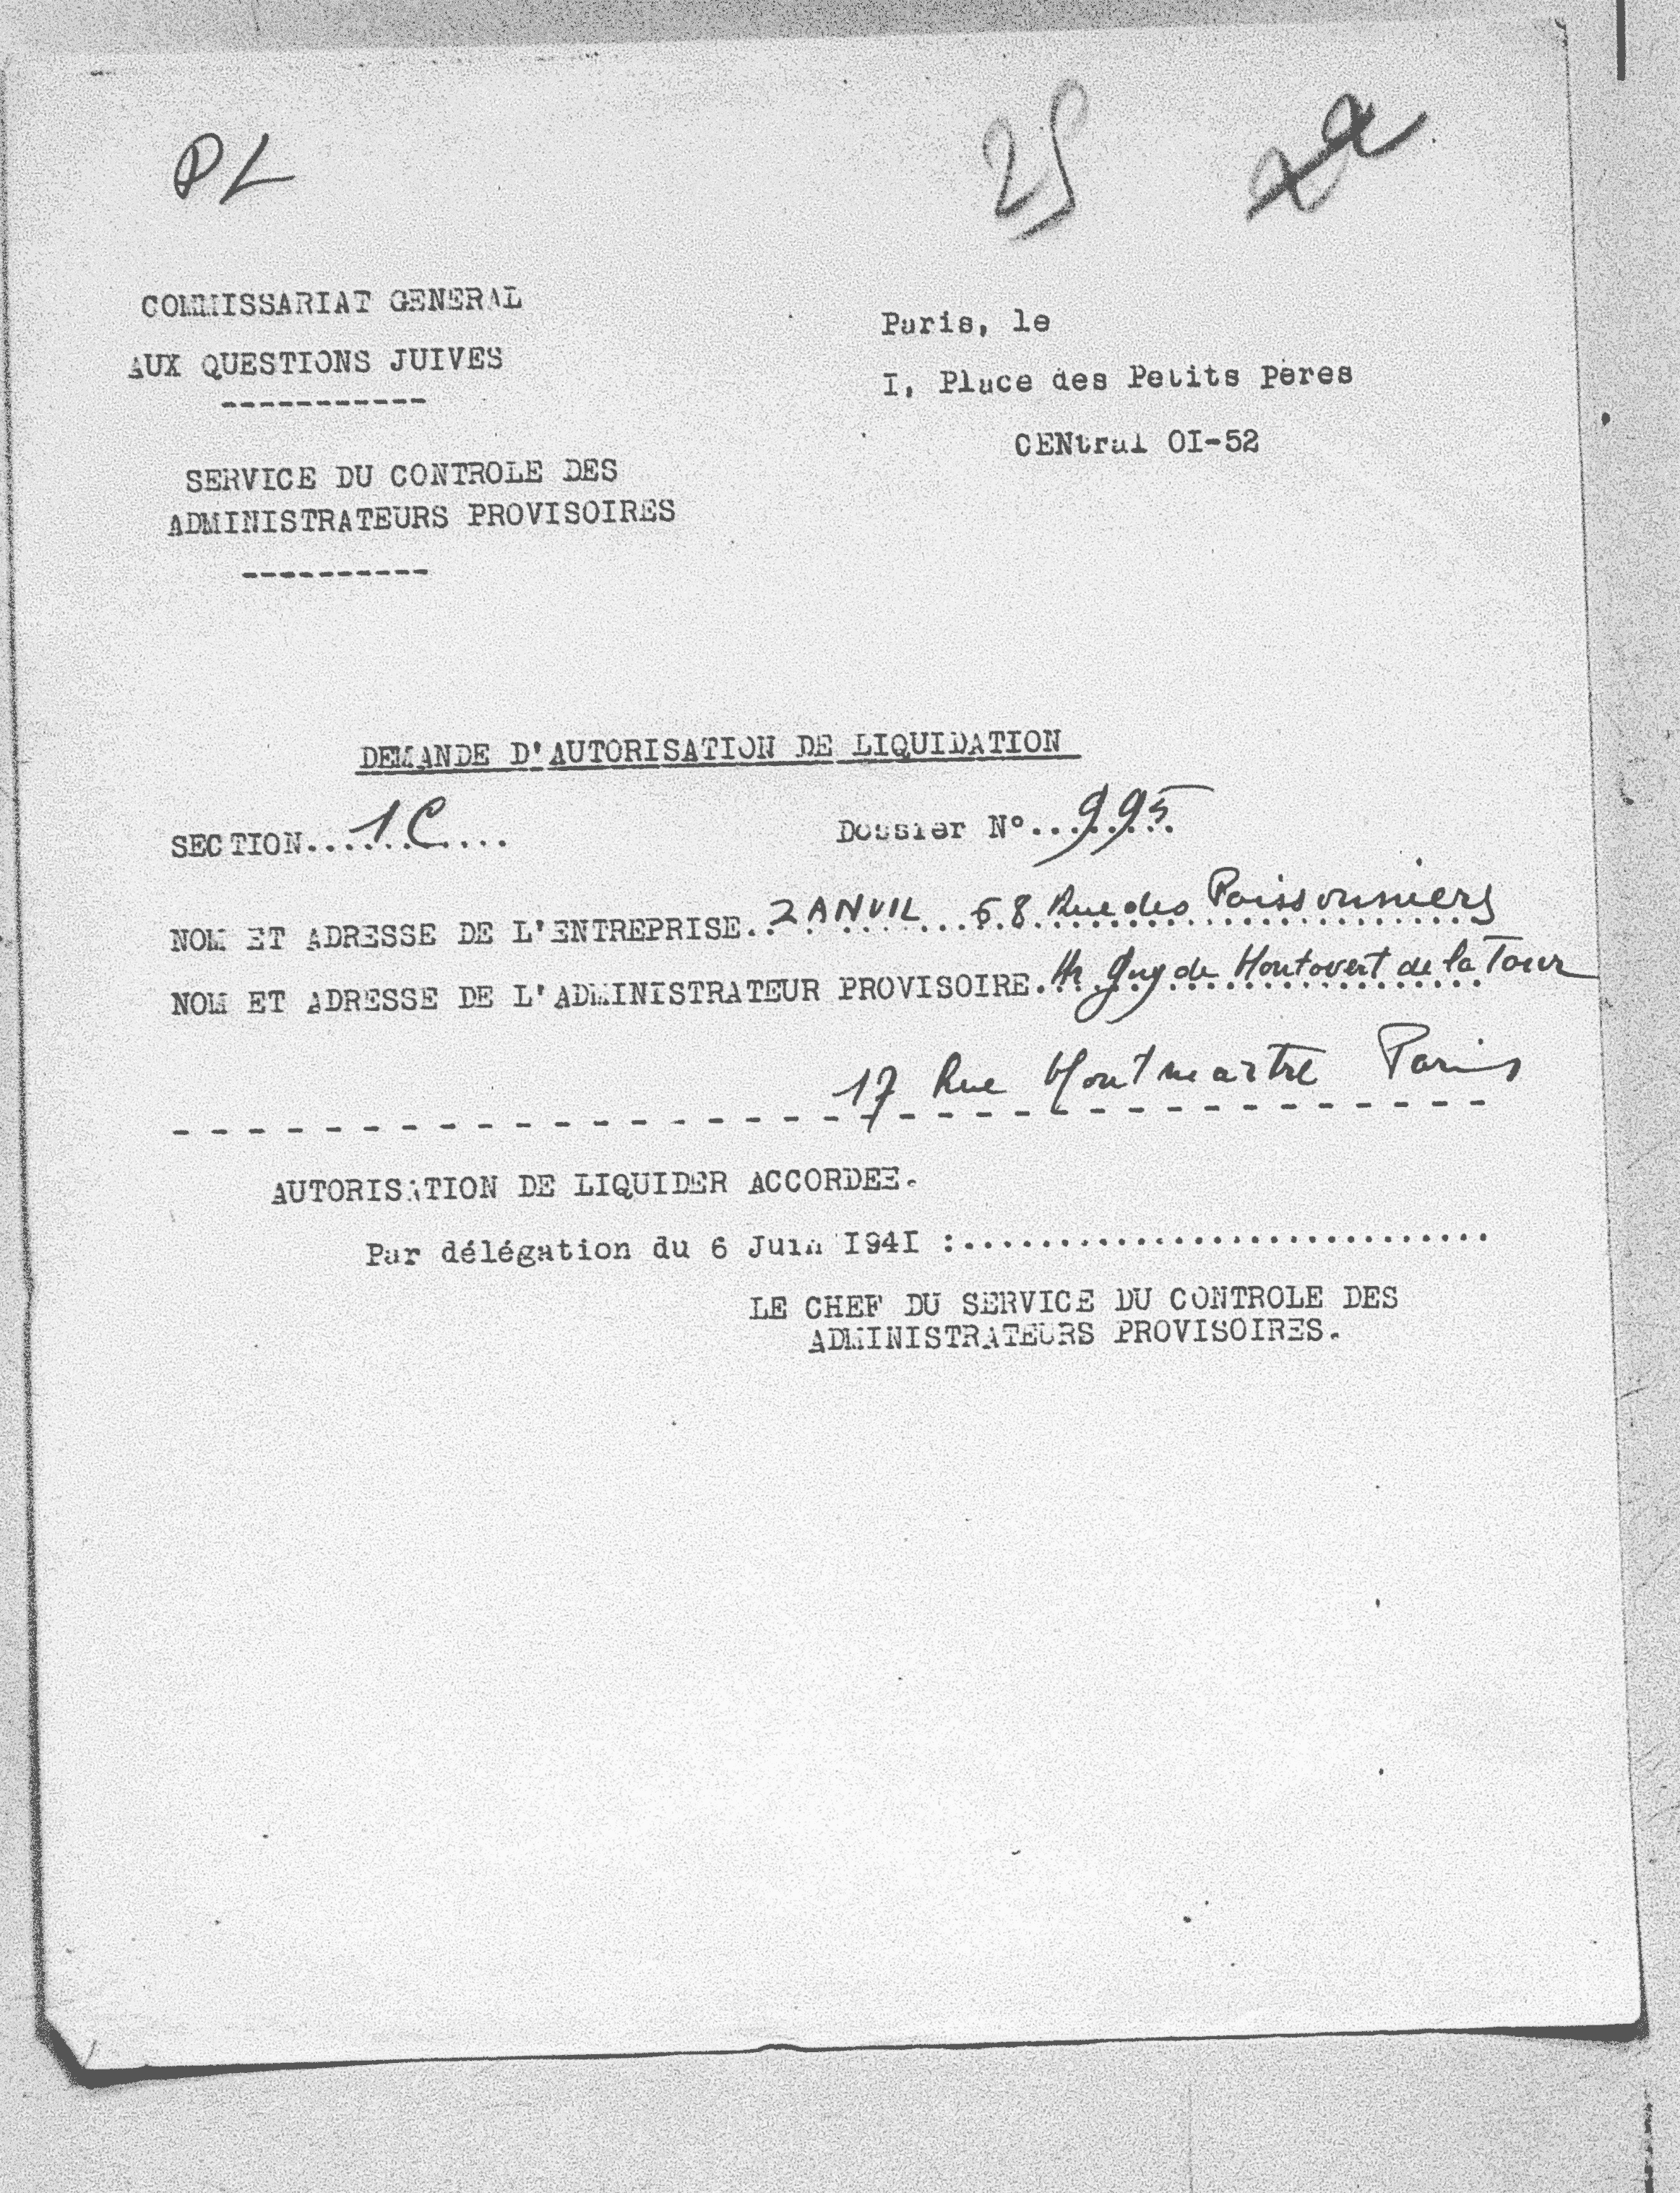 PL
25
COMMISSARIAT GENERAL
AUX QUESTIONS JUIVES
-----------
SERVICE DU CONTROLE DES
ADMINISTRATEURS PROVISOIRES
----------
Paris, le
I, Place des Petits Pères
CENtral OI-52
DEMANDE D'AUTORISATION DE LIQUIDATION
SECTION...1C.... Dossier N°..995
NOM ET ADRESSE DE L'ENTREPRISE..ZANVIL 68 Rue des Poissonniers
NOM ET ADRESSE DE L'ADMINISTRATEUR PROVISOIRE. Mr Guy de Montovert de la Tour
17 Rue Montmartre Paris
AUTORISATION DE LIQUIDER ACCORDEE.
Par délégation du 6 Juin I94I :............................
LE CHEF DU SERVICE DU CONTROLE DES
ADMINISTRATEURS PROVISOIRES.